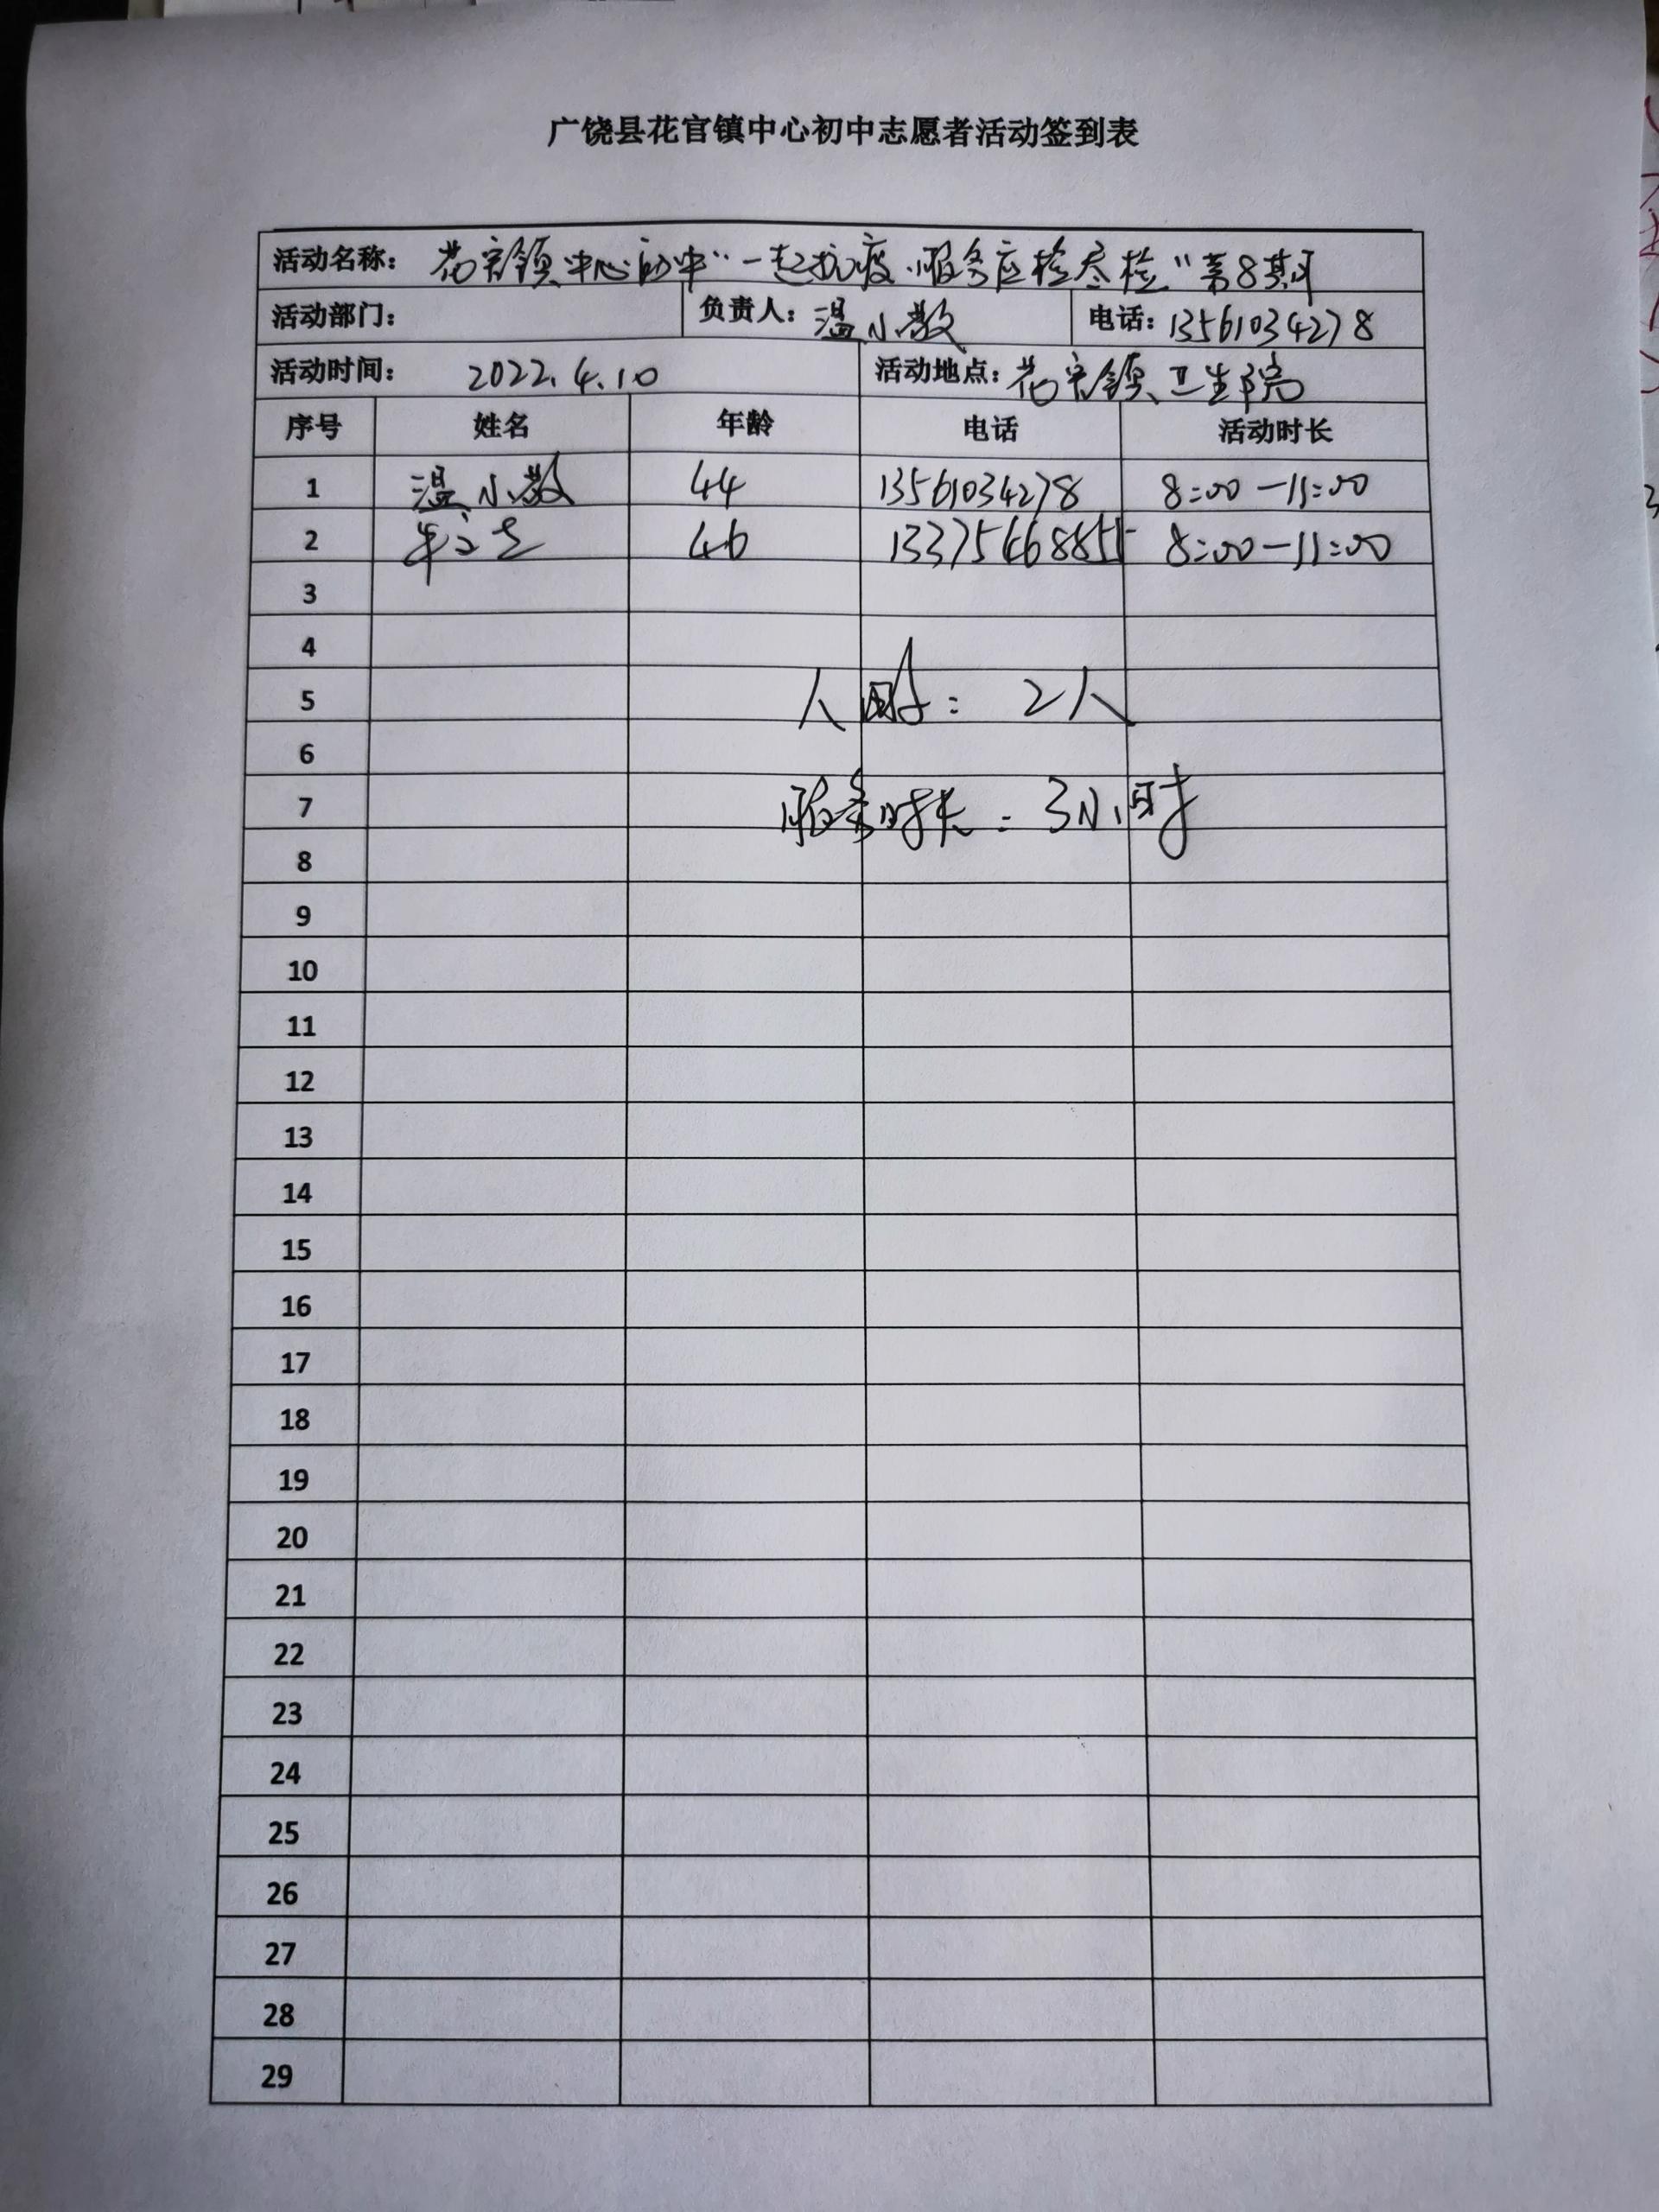 广饶县花官镇中心初中志愿者活动签到表
活动名称： 花官镇中心初中“一起抗疫，服务应检尽检”第8期
活动部门： 负责人：温小敏 电话：13561034278
活动时间： 2022.4.10 活动地点：花官镇卫生院
序号 姓名 年龄 电话 活动时长
1 温小敏 44 13561034278 8:00－11:00
2 46 13375468855 8:00－11:00
3
4
5 人 ： 2人
6
7 服务时长：3小时
8
9
10
11
12
13
14
15
16
17
18
19
20
21
22
23
24
25
26
27
28
29